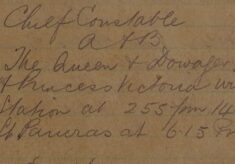 Chief Constable
A & B.
The Queen & Dowager
& Princess Victoria
Station at 255 pm 14
St Pancras at 6.15 Pm